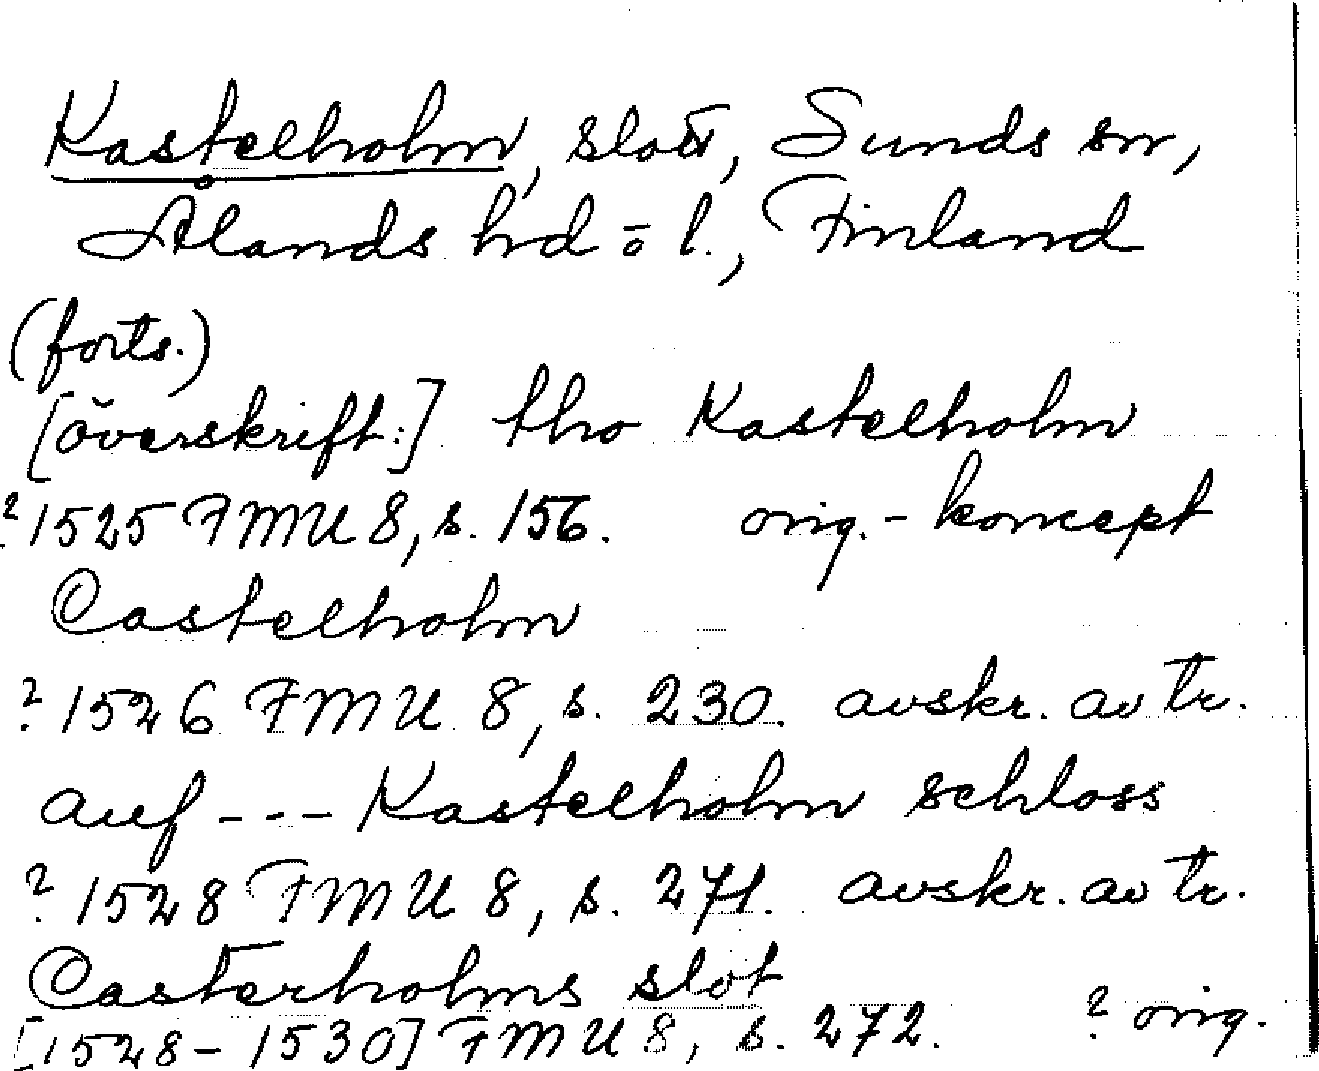 Kastelholm, slott, Sunds sn,
Ålands hd o l., Finland
(forts.)
[överskrift:] tho Kastelholm
? 1525 FMU 8, s. 156. orig.-koncept
Castelholm
? 1526 FMU 8, s. 230. avskr. av tr.
auf --- Kastelholm schloss
? 1528 FMU 8, s. 271. avskr. av tr.
Casterholms slot
[1528-1530] FMU 8, s. 272. ? orig.